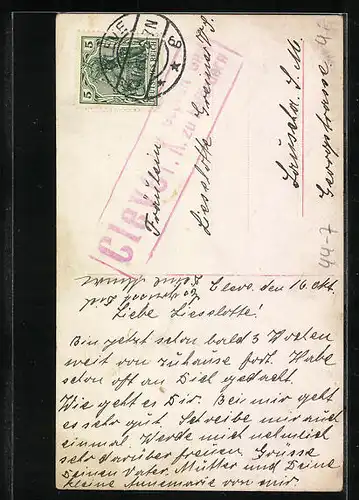 5 DEUTSCHES REICH 5
Cleve
Fräulein
Lieselotte Greiner
Lauscha S. M.
Georgstrasse
44-7
Cleve, den 16 Okt.
Liebe Lieselotte!
Bin jetzt schon bald 3 Wochen
weit von zuhause fort. Habe
schon oft an Dich gedacht.
Wie geht es Dir. Bei mir geht
es sehr gut. Schreibe mir auch
einmal. Werde mich nehmlich
sehr darüber freuen. Grüsse
Deinen Vater, Mutter und Deine
kleine Annemarie von mir.